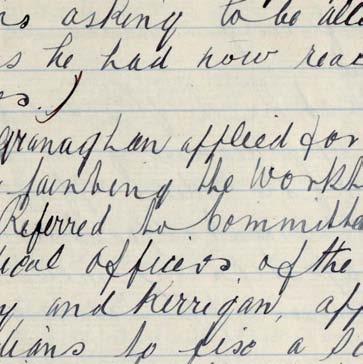 ns asking to be allo
s he had now reac
es.)
granaghan applied for
painting the Workh
Referred to Committee
ical officers of the
y and Kerrigan, app
dians to fix a s